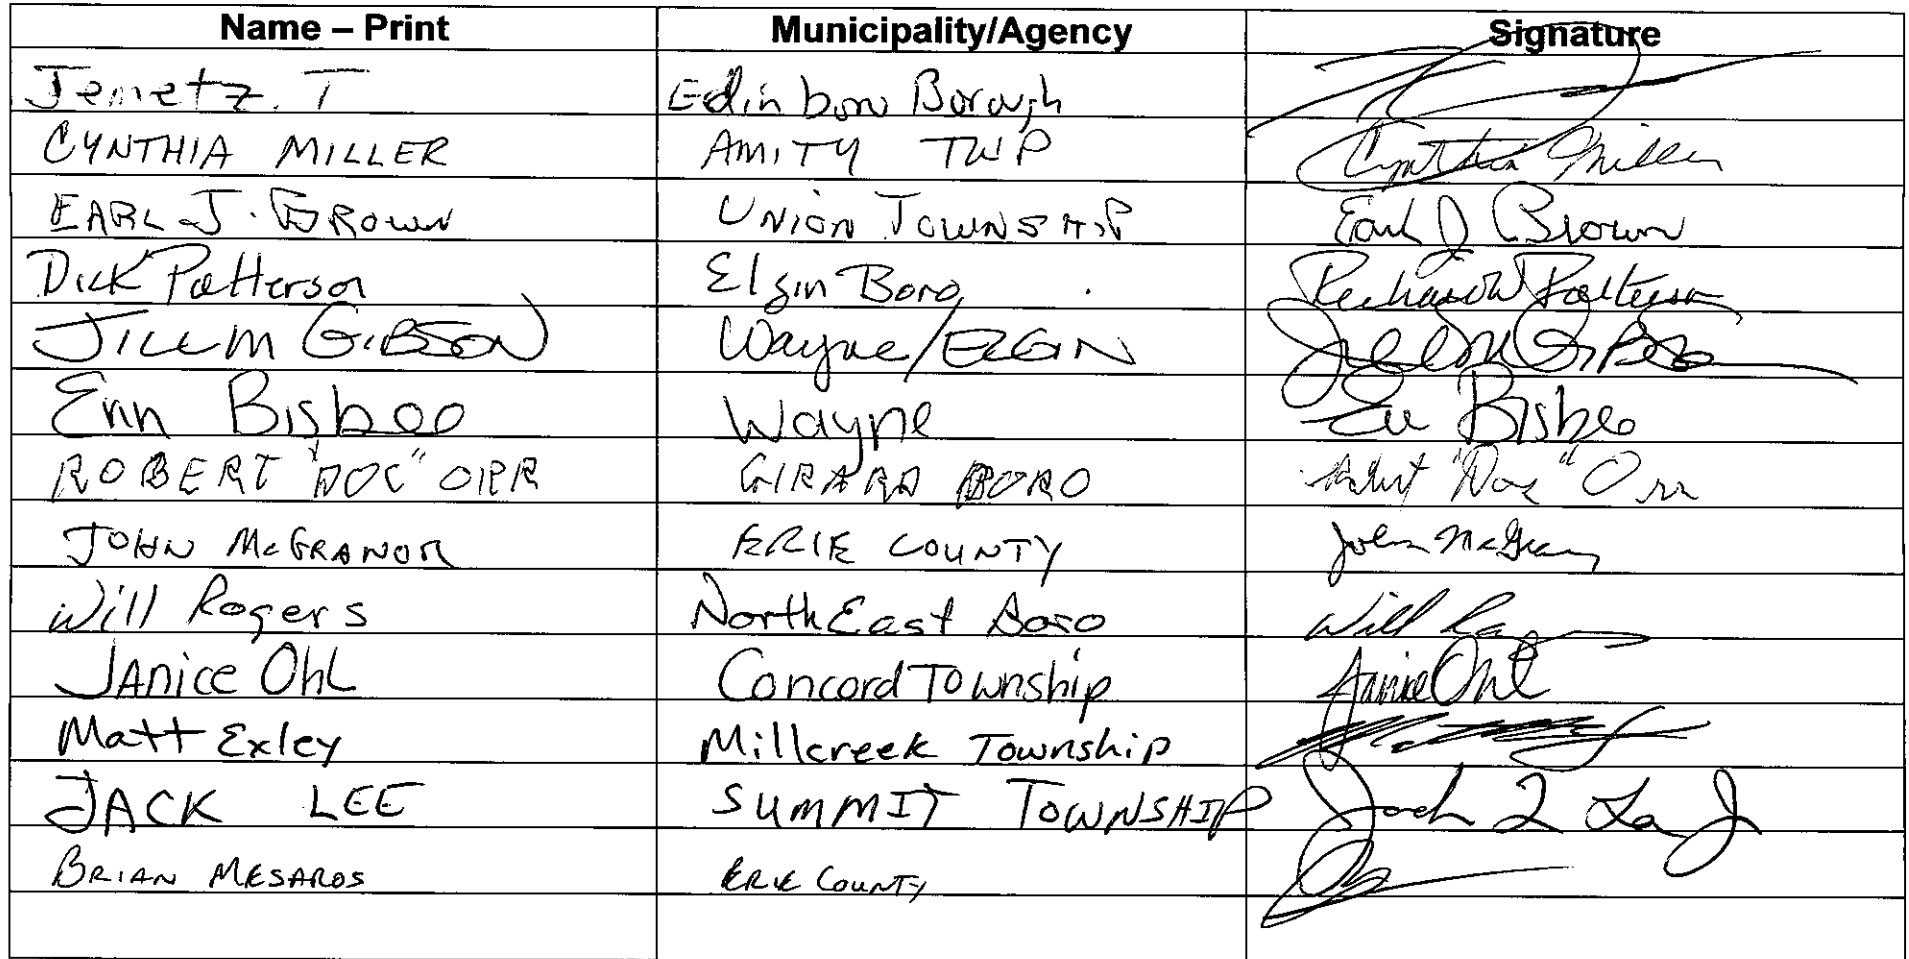 Name – Print Municipality/Agency Signature
Jemetz. T Edinboro Borough
CYNTHIA MILLER AMITY TWP Cynthia Miller
EARL J. BROWN UNION TOWNSHIP Earl J Brown
Dick Patterson Elgin Boro Richard W Patterson
JILL M GIBSON Wayne/ELGIN Jill M Gibson
Erin Bisbee Wayne Bisbee
ROBERT "DOC" ORR GIRARD BORO Robert "Doc" Orr
JOHN McGRANOR ERIE COUNTY John McGran
Will Rogers North East Boro Will
JANice OhL Concord Township Janice Ohl
Matt Exley Millcreek Township
JACK LEE SUMMIT TOWNSHIP Jack L Lee Jr
BRIAN MESAROS ERIE COUNTY